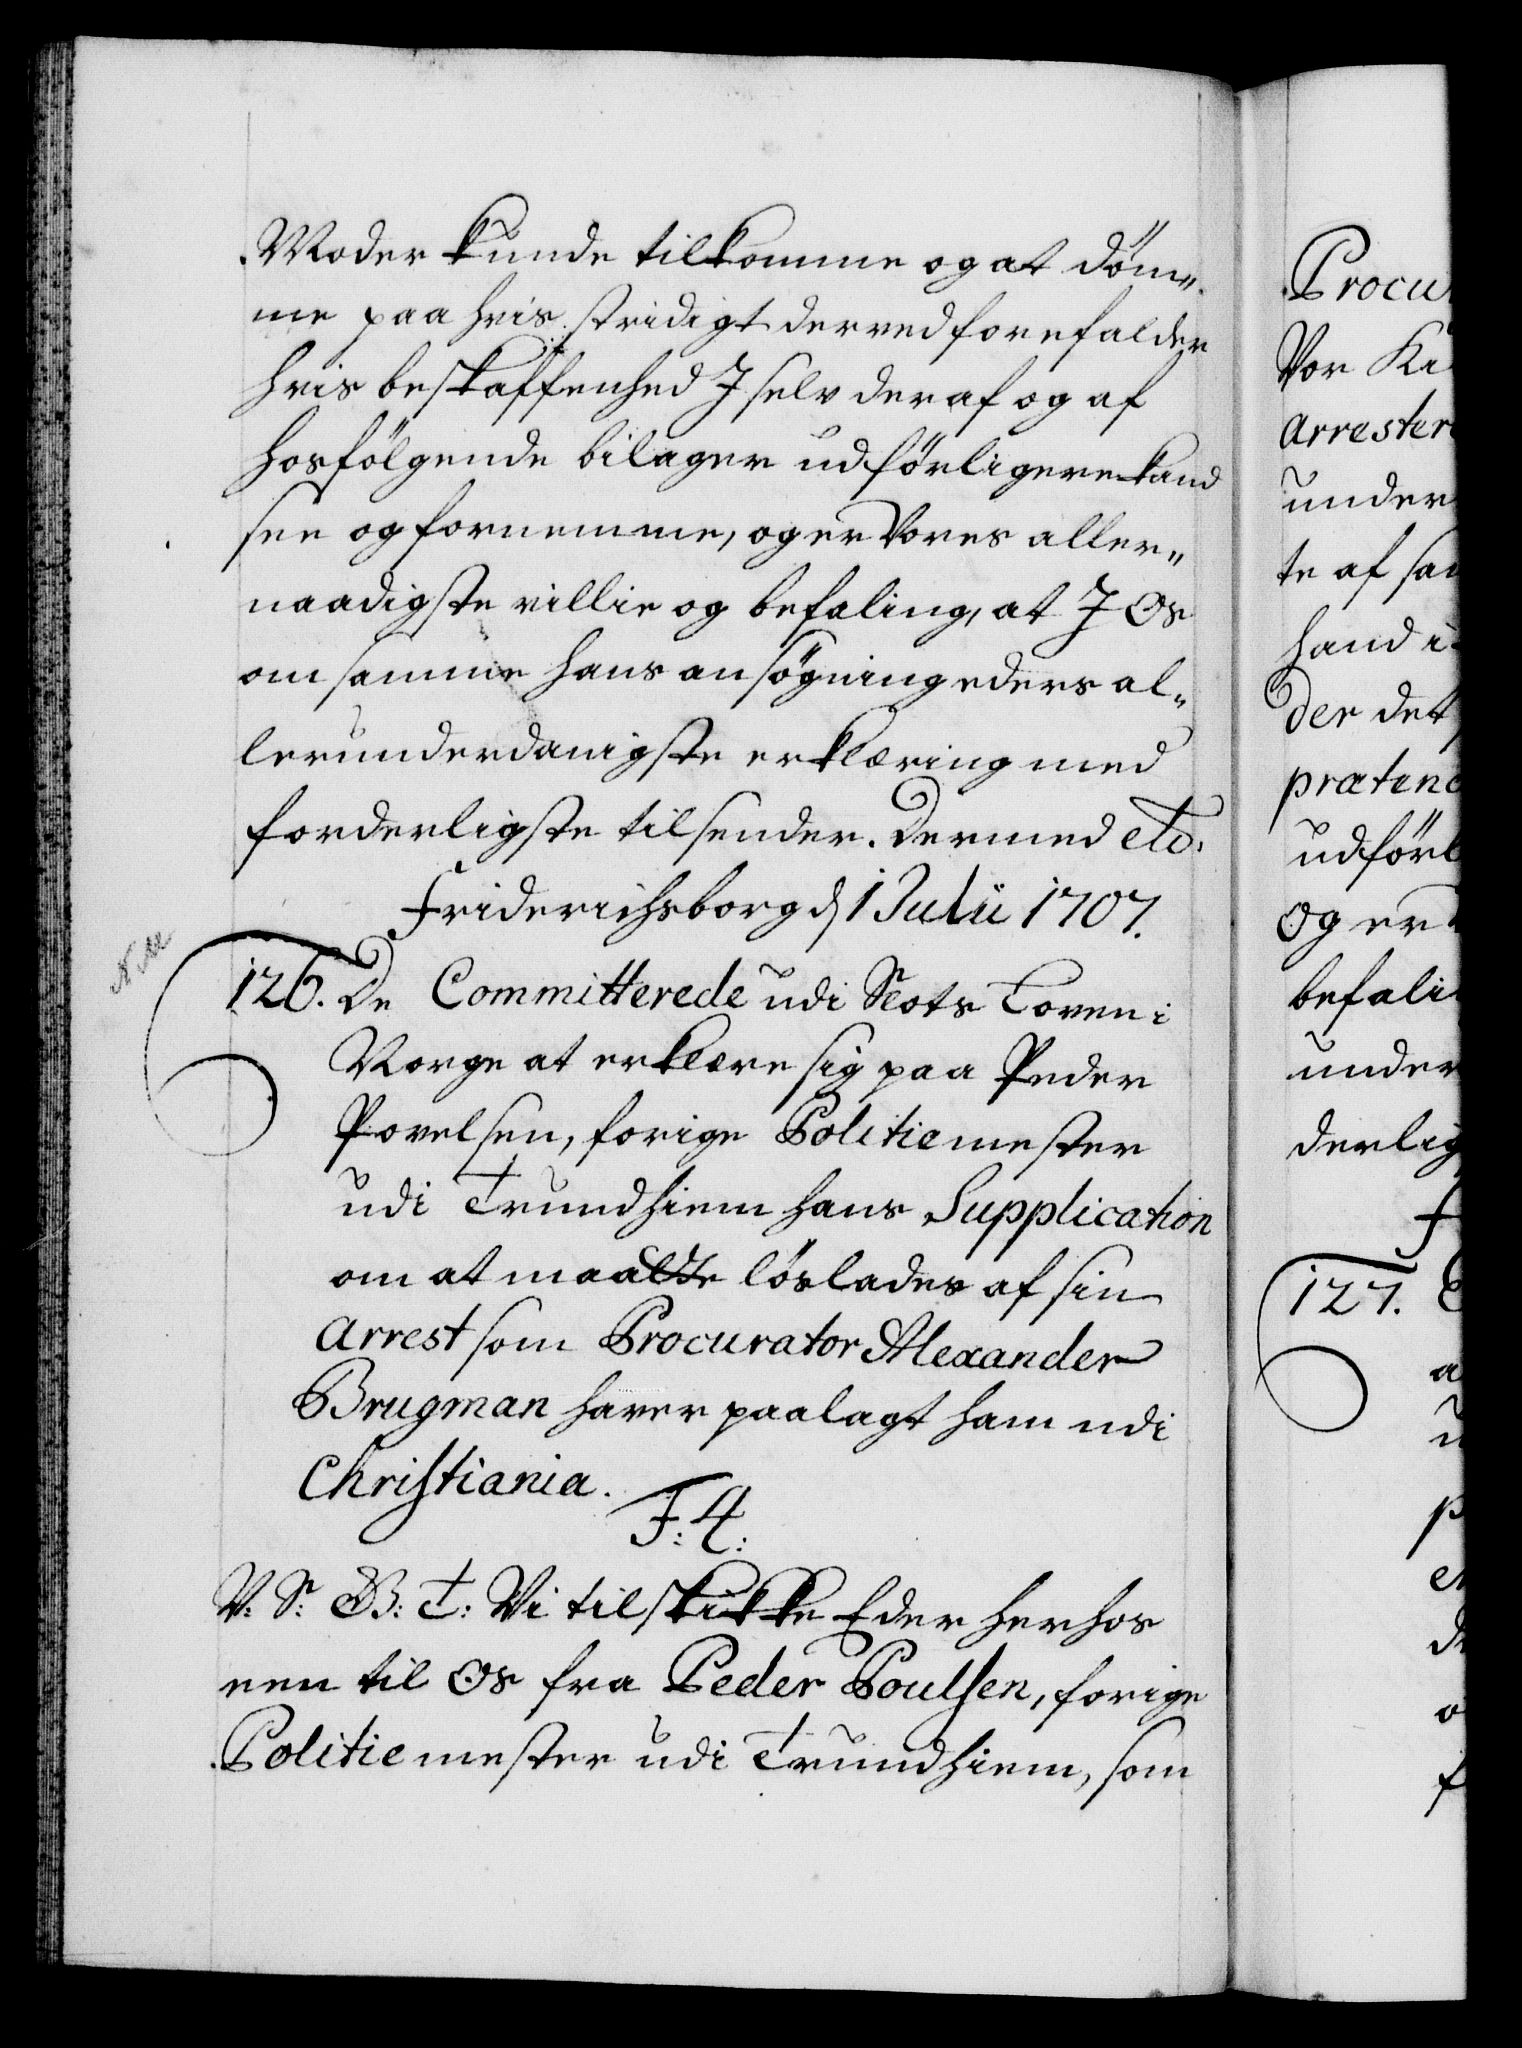 Moder kunde tilkomme og at döm„
me paa hvis stridigt derved forefalder
hvis beskaffenhed I selv deraf og af
hosfölgende bilager udförligere kand
see og fornemme, og er Vores aller„
naadigste villie og befaling, at I Os
om samme hans ansögning eders al„
lerunderdanigste erklæring med
forderligste tilsender. Dermed etc.
Friderichsborg d 1 Julii 1707.
126. De Committerede udi Slots Loven i
Norge at erklære sig paa Peder
Povelsen, forige Politiemester
udi Trundhiem hans Supplication
om at maatte löslades af sin
Arrest som Procurator Alexander
Brugman haver paalagt ham udi
Christiania.
F: 4.
V: S: G: T: Vi tilskikke Eder herhos
een til Os fra Peder Poulsen, forige
Politiemester udi Trundhiem, som
Procu
Vor Ki
Arrester
under
te af sa
hand i
der det
præten
udförl
og er
befali
under
derlig
F
127.